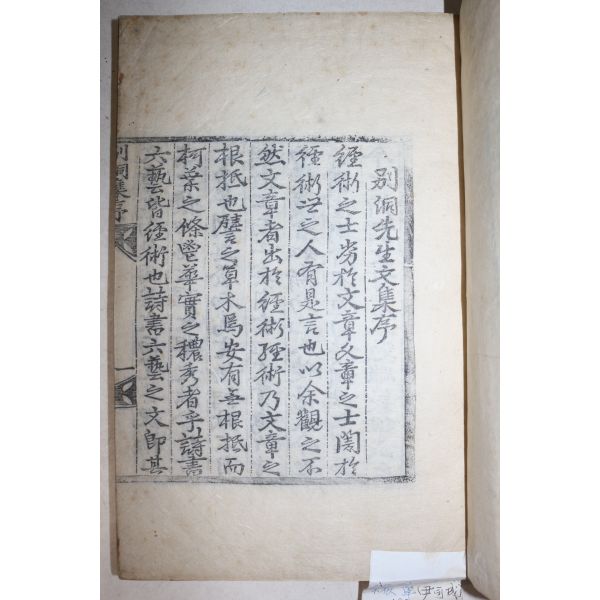 別洞先生文集序
經術之士劣於文章文章之士闇於
經術世之人有是言也以余觀之不
然文章者出於經術經術乃文章之
根抵也譬之草木焉安有無根抵而
柯葉之條鬯華實之穠秀者乎詩書
六藝皆經術也詩書六藝之文卽其
別洞集序
一